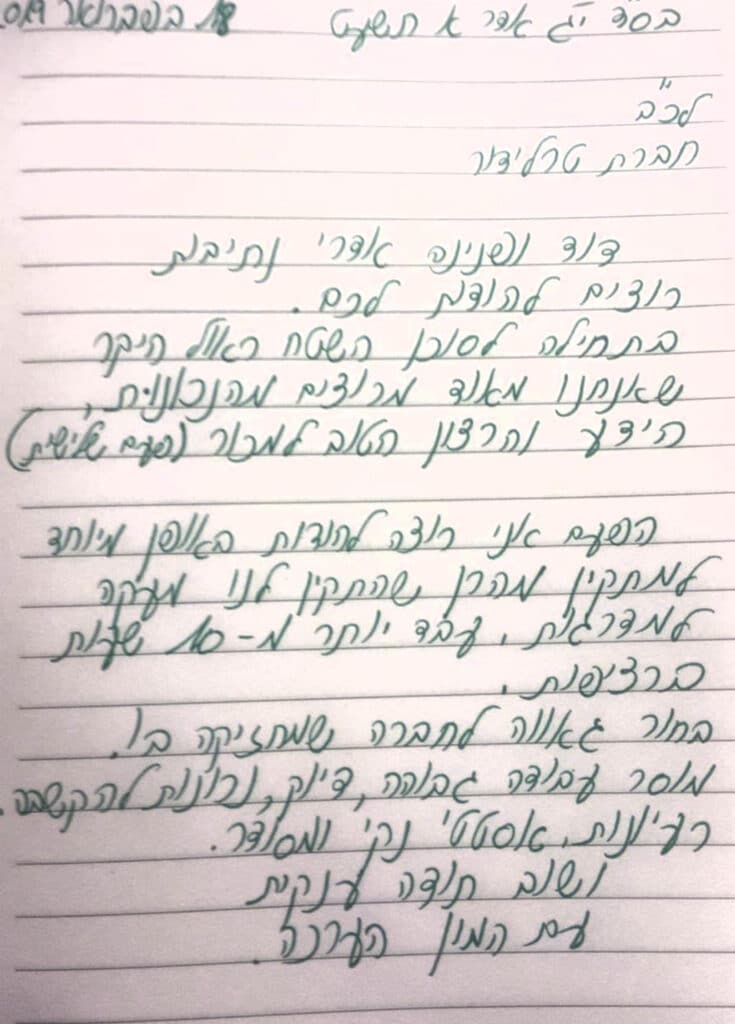 בס״ד י״ג אדר א תשע״ט 18 בפברואר 019
לכ״ב
חברת טרלידור
דוד ופנינה אדרי נתיבות
רוצים להודות לכם.
בתחילה לסוכן השטח ראול היקר
שאנחנו מאוד מרוצים מהנכונות,
הידע והרצון הטוב למכור (פעם שלישית)
הפעם אני רוצה להודות באופן מיוחד
למתקין מהרן שהתקין לנו מעקה
למדרגות, עבד יותר מ-10 שעות
ברציפות.
בחור גאווה לחברה שמחזיקה בו.
מוסר עבודה גבוהה, דיוק, נכונות להקשבה.
רעיונות, אסטטי נקי ומסודר.
ושוב תודה ענקית
עם המון הערכה.